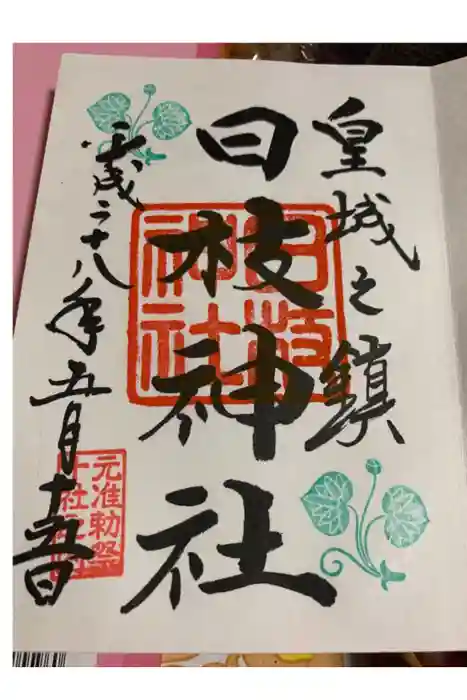 皇城之鎮
日枝神社
日枝神社
平成二十八年五月十五日
元准勅祭
十社之内